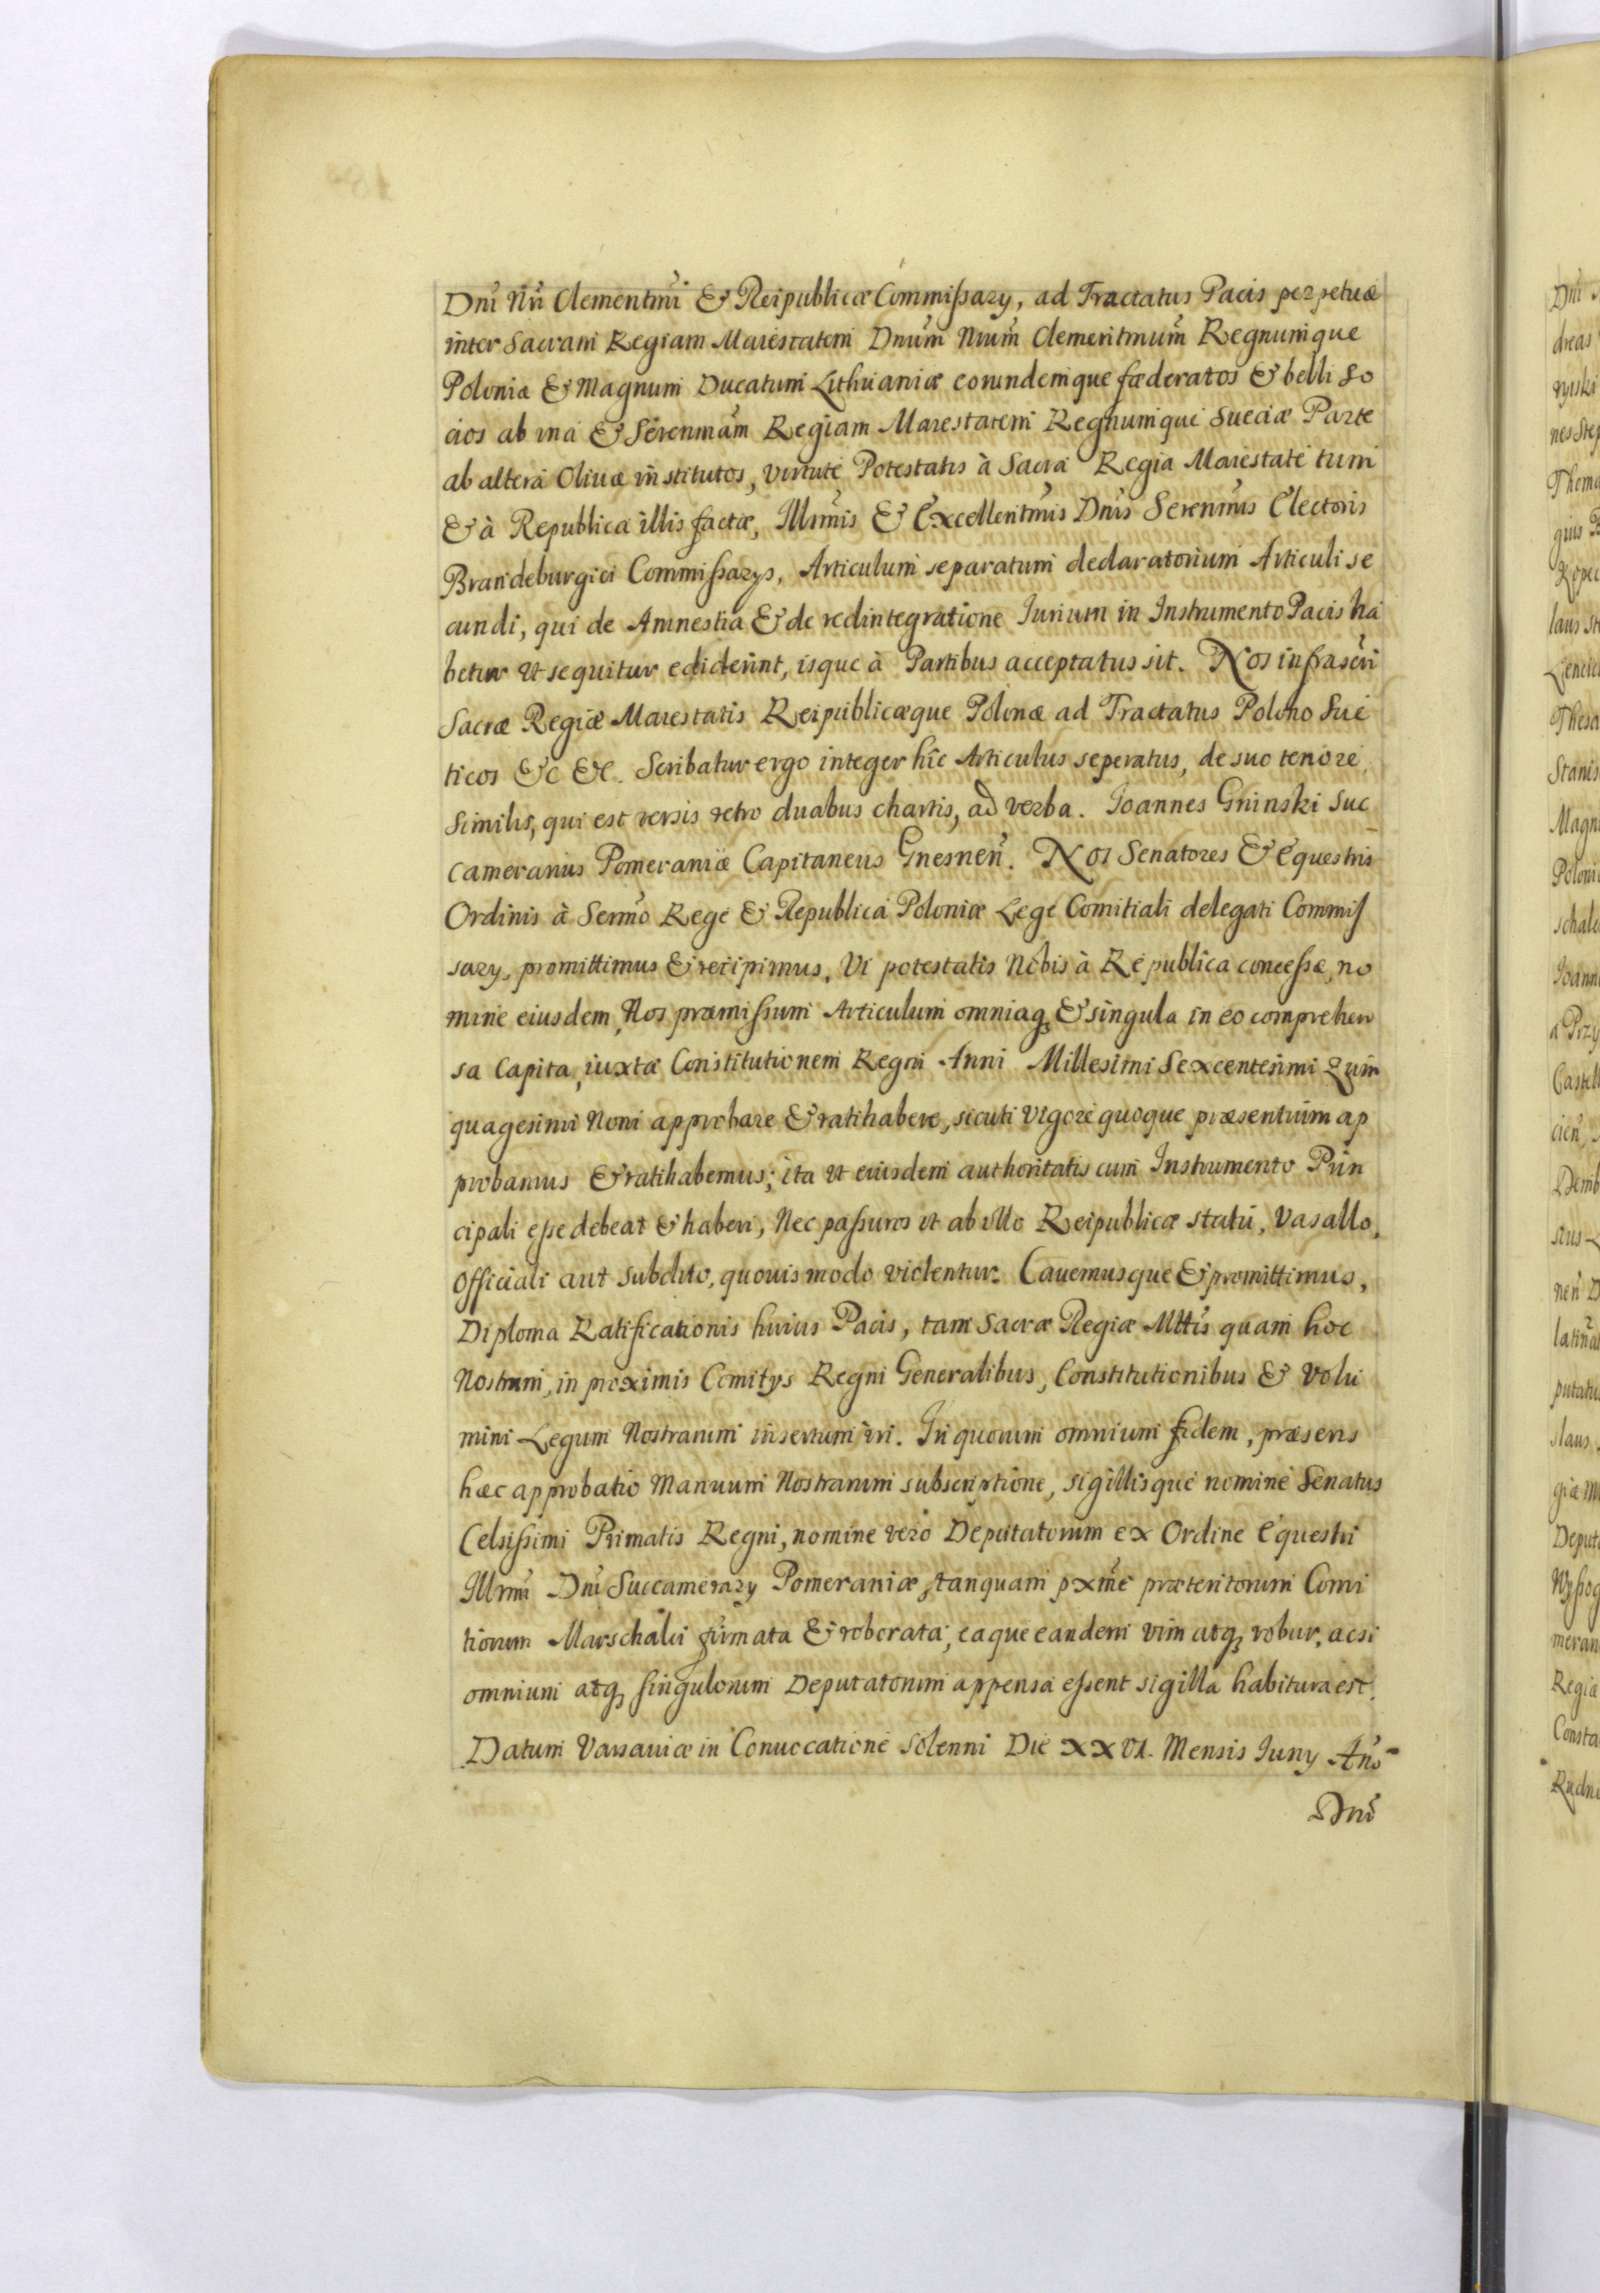 Dni Nri Clementmi & Reipublicæ Commissary, ad Tractatus Pacis perpetuæ
inter Sacram Regiam Maiestatem Dnum Nrum Clementmum Regnumque
Poloniæ & Magnum Ducatum Lithuaniæ eorundemque fæderatos & belli so
cios ab una & Serenmam Regiam Maiestatem Regnumque Sueciæ Parte
ab altera Oliuæ institutos, virtute Potestatis à Sacra Regia Maiestate tum
& à Republica illis factæ, Illrmis & Excellentmis Dnis Serenmis Electoris
Brandeburgici Commissarys, Articulum separatum declaratorium Articuli se
cundi, qui de Amnestia & de redintegratione Iurium in Instrumento Pacis ha
betur ut sequitur ediderint, isque à Partibus acceptatus sit. Nos infrascri
Sacræ Regiæ Maiestatis Reipublicæque Polonæ ad Tractatus Polono Sue
ticos &c &c. Scribatur ergo integer hîc Articulus seperatus, de suo tenore
similis, qui est versis retro duabus chartis, ad verba. Ioannes Gninski Suc
camerarius Pomeraniæ Capitaneus Gnesnen. Nos Senatores & Equestris
Ordinis à Sermo Rege & Republica Poloniæ Lege Comitiali delegati Commis
sary, promittimus & recipimus, Vi potestatis Nobis à Republica concessæ, no
mine eiusdem, Nos præmissum Articulum omniaq & singula in eo comprehen
sa Capita, iuxta Constitutionem Regni Anni Millesimi Sexcentesimi Quin
quagesimi Noni approbare & ratihabere, sicuti vigore quoque præsentium ap
probamus & ratihabemus; ita ut eiusdem authoritatis cum Instrumento Prin
cipali esse debeat & haberi, Nec passuros ut ab ullo Reipublicæ statu, Vasallo,
Officiali aut Subdito, quouis modo violentur. Cauemusque & promittimus,
Diploma Ratificationis huius Pacis, tam Sacræ Regiæ Mttis quam hoc
Nostrum, in proximis Comitys Regni Generalibus, Constitutionibus & Volu
mini Legum Nostrarum insertum iri. In quorum omnium fidem, præsens
hæc approbatio Manuum Nostrarum subscriptione, sigillisque nomine Senatus
Celsissimi Primatis Regni, nomine vero Deputatorum ex Ordine Equestri
Illrmi Dni Succamerary Pomeraniæ, tanquam pxme præteritorum Comi
tiorum Marschalci firmata & roborata, eaque eandem vim atq robur, acsi
omnium atq singulorum Deputatorum appensa essent sigilla habitura est.
Datum Varsauiæ in Conuocatione Solenni Die XXVI. Mensis Iuny Ano
Dni